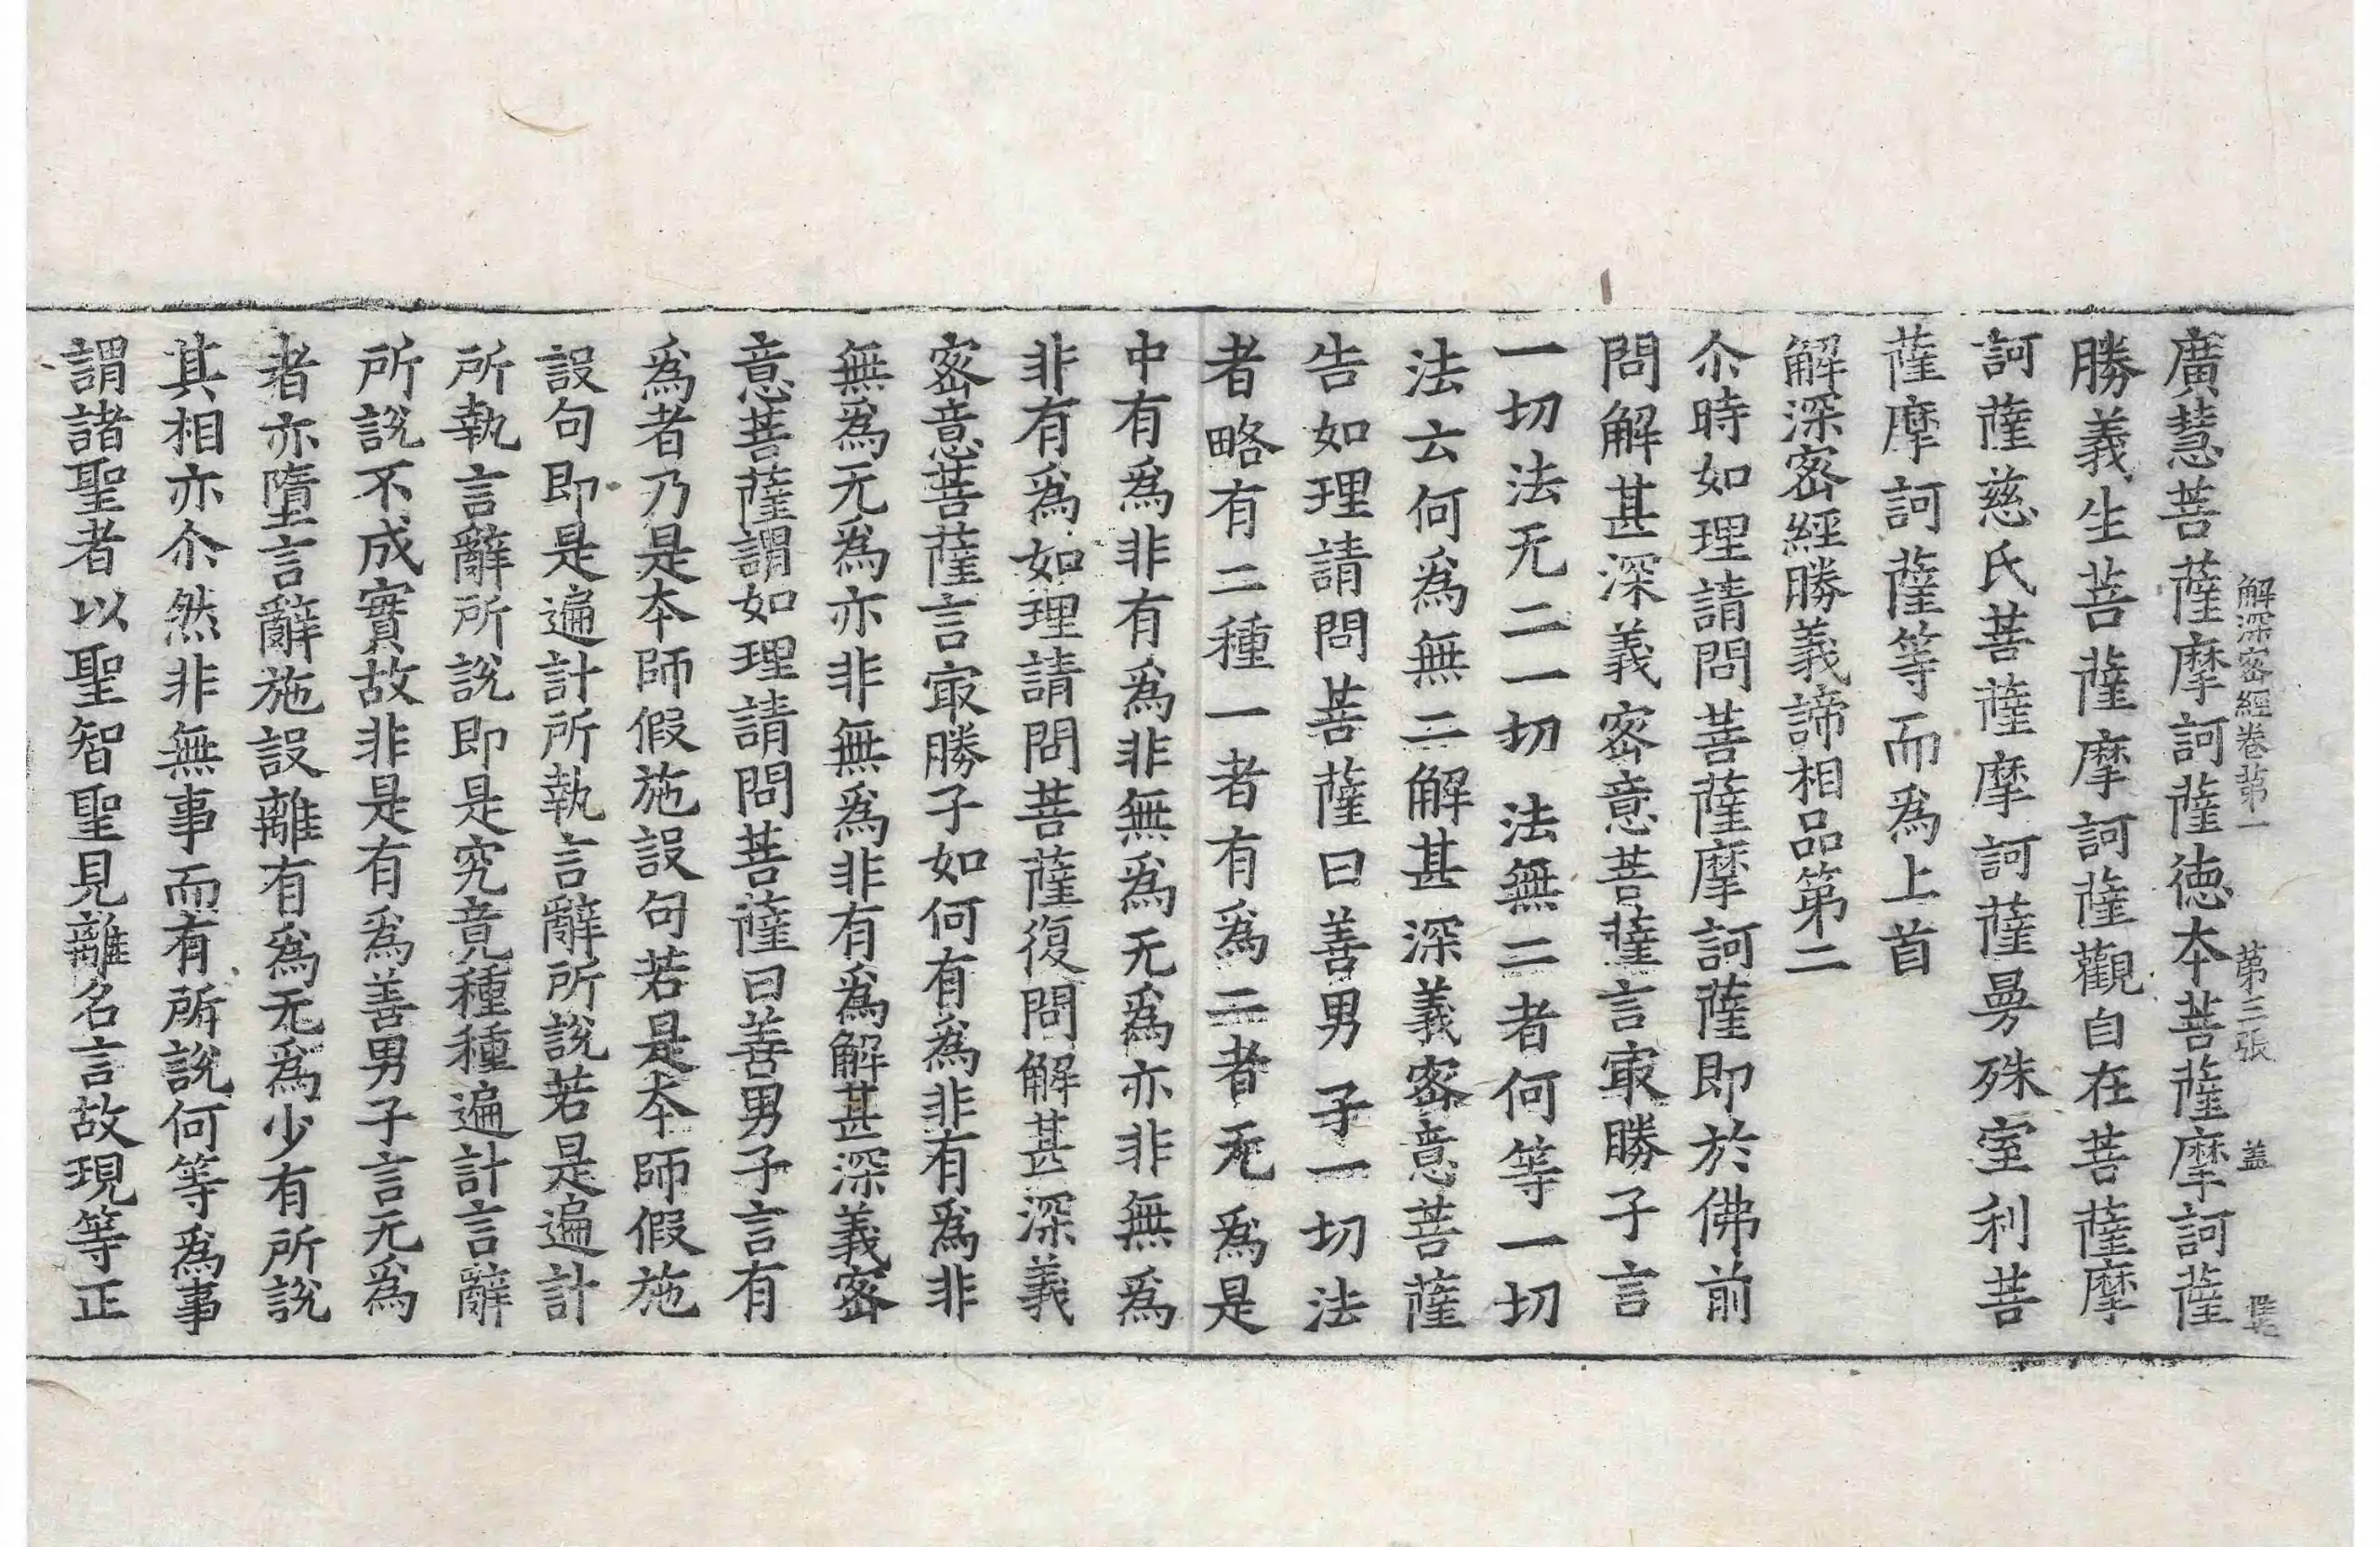 解深密經卷第一　第三張　盖
廣慧菩薩摩訶薩德本菩薩摩訶薩
勝義生菩薩摩訶薩觀自在菩薩摩
訶薩慈氏菩薩摩訶薩曼殊室利菩
薩摩訶薩等而爲上首
解深密經勝義諦相品第二
尒時如理請問菩薩摩訶薩即於佛前
問解甚深義密意菩薩言㝡勝子言
一切法无二一切法無二者何等一切
法云何爲無二解甚深義密意菩薩
告如理請問菩薩曰善男子一切法
者略有二種一者有爲二者无爲是
中有爲非有爲非無爲无爲亦非無爲
非有爲如理請問菩薩復問解甚深義
密意菩薩言㝡勝子如何有爲非有爲非
無爲无爲亦非無爲非有爲解甚深義密
意菩薩謂如理請問菩薩曰善男子言有
爲者乃是本師假施設句若是本師假施
設句即是遍計所執言辭所說若是遍計
所執言辭所說即是究竟種種遍計言辭
所說不成實故非是有爲善男子言无爲
者亦墮言辭施設離有爲无爲少有所說
其相亦尒然非無事而有所說何等爲事
謂諸聖者以聖智聖見離名言故現等正